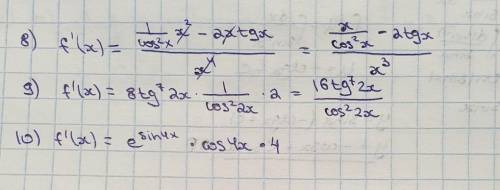 8) f'(x) = (1/cos²x · x² − 2x tg x)/x⁴ = (x/cos²x − 2tg x)/x³
9) f'(x) = 8tg⁷2x · 1/cos²2x · 2 = 16tg⁷2x/cos²2x
10) f'(x) = e^(sin4x) · cos4x · 4